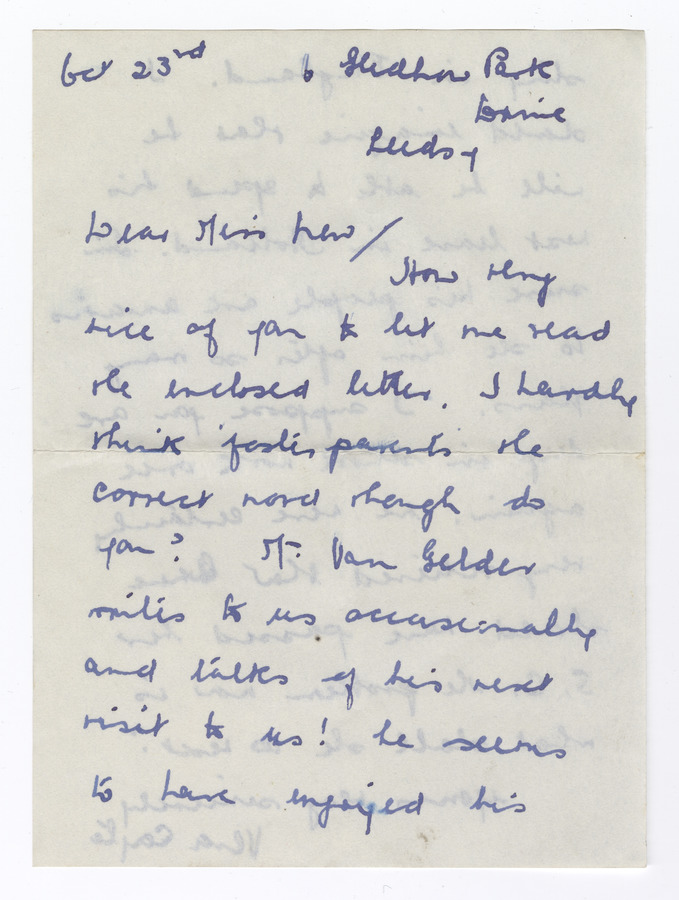 Oct 23rd 6 Gledhow Park
Drive
Leeds 7
Dear Miss New /
How very
nice of you to let me read
the enclosed letter. I hardly
think 'foster parents' the
correct word though do
you? Mr. Van Gelder
writes to us occasionally
and talks of his next
visit to us! he seems
to have enjoyed his